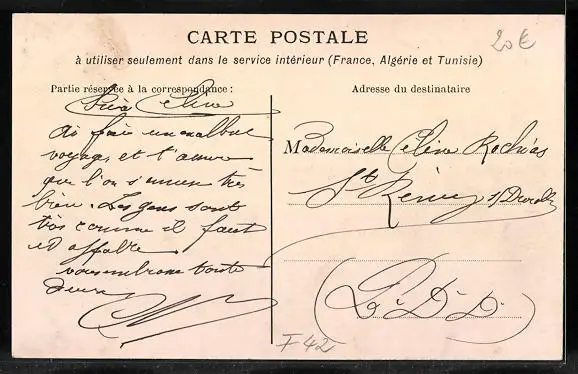 CARTE POSTALE
20€
à utiliser seulement dans le service intérieur (France, Algérie et Tunisie)
Partie réservée à la correspondance :
Adresse du destinataire
Chère Céline
ai fait un
voyage, et
que l'on s'amuse très
bien. Les gens sont
très comme il faut
et affable
toute
deux
Mademoiselle Céline Rochias
St Rémy s/Durolle
P. D. D.
F 42